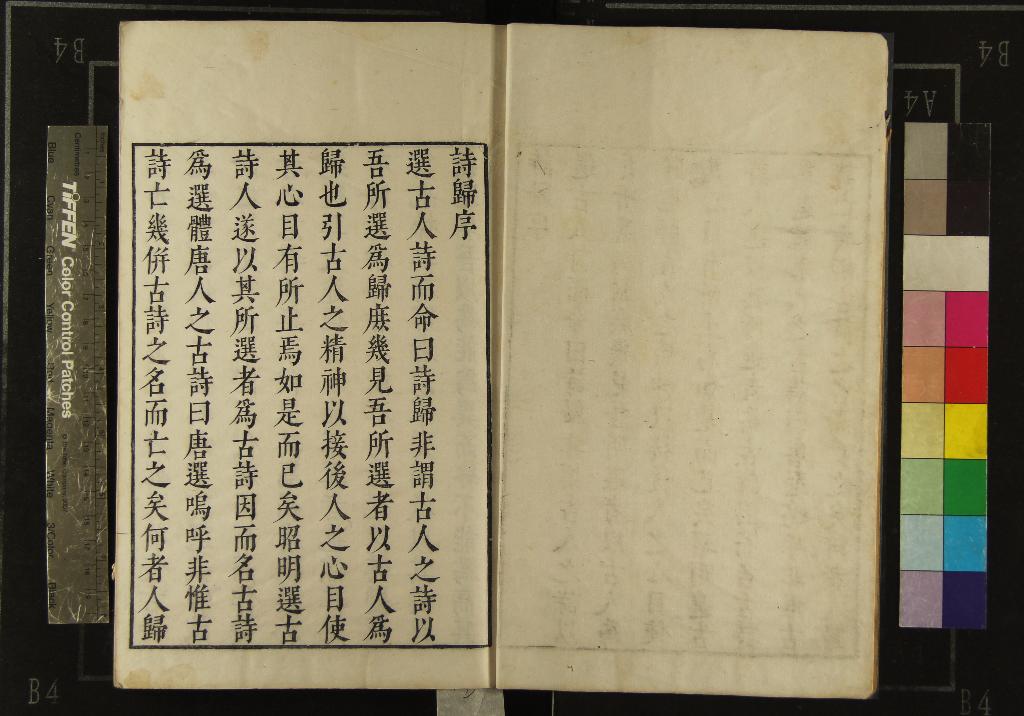 詩歸序
選古人詩而命曰詩歸非謂古人之詩以
吾所選爲歸庻幾見吾所選者以古人爲
歸也引古人之精神以接後人之心目使
其心目有所止焉如是而已矣昭明選古
詩人遂以其所選者爲古詩因而名古詩
爲選體唐人之古詩曰唐選嗚呼非惟古
詩亡幾併古詩之名而亡之矣何者人歸
B4
B4
A4
B4
B4
TIFFEN Color Control Patches
Centimetres
Blue
Cyan
Green
Yellow
Red
Magenta
White
3/Color
Black